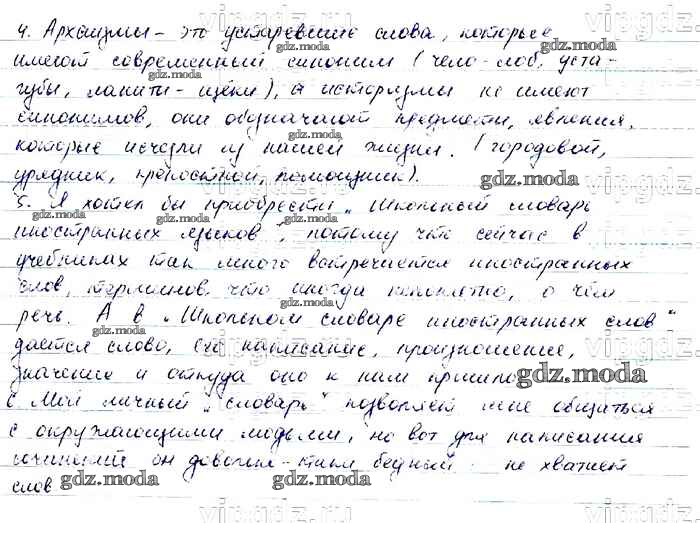 4. Архаизмы – это устаревшие слова, которые
имеют современный синоним (чело-лоб, уста-
губы, ланиты-щёки), а историзмы не имеют
синонимов, они обозначают предметы, явления,
которые исчезли из нашей жизни. (городовой,
урядник, крепостной, помощник).
5. Я хотел бы приобрести „Школьный словарь
иностранных языков", потому что сейчас в
учебниках так много встречается иностранных
слов, терминов, что иногда непонятно, о чём
речь. А в „Школьном словаре иностранных слов"
даётся слово, его написание, произношение,
значение и откуда оно к нам пришло
6 Мой личный „словарь" позволяет мне общаться
с окружающими людьми, но вот для написания
сочинений он довольно-таки бедный: не хватает
слов
gdz.moda
vipgdz.ru